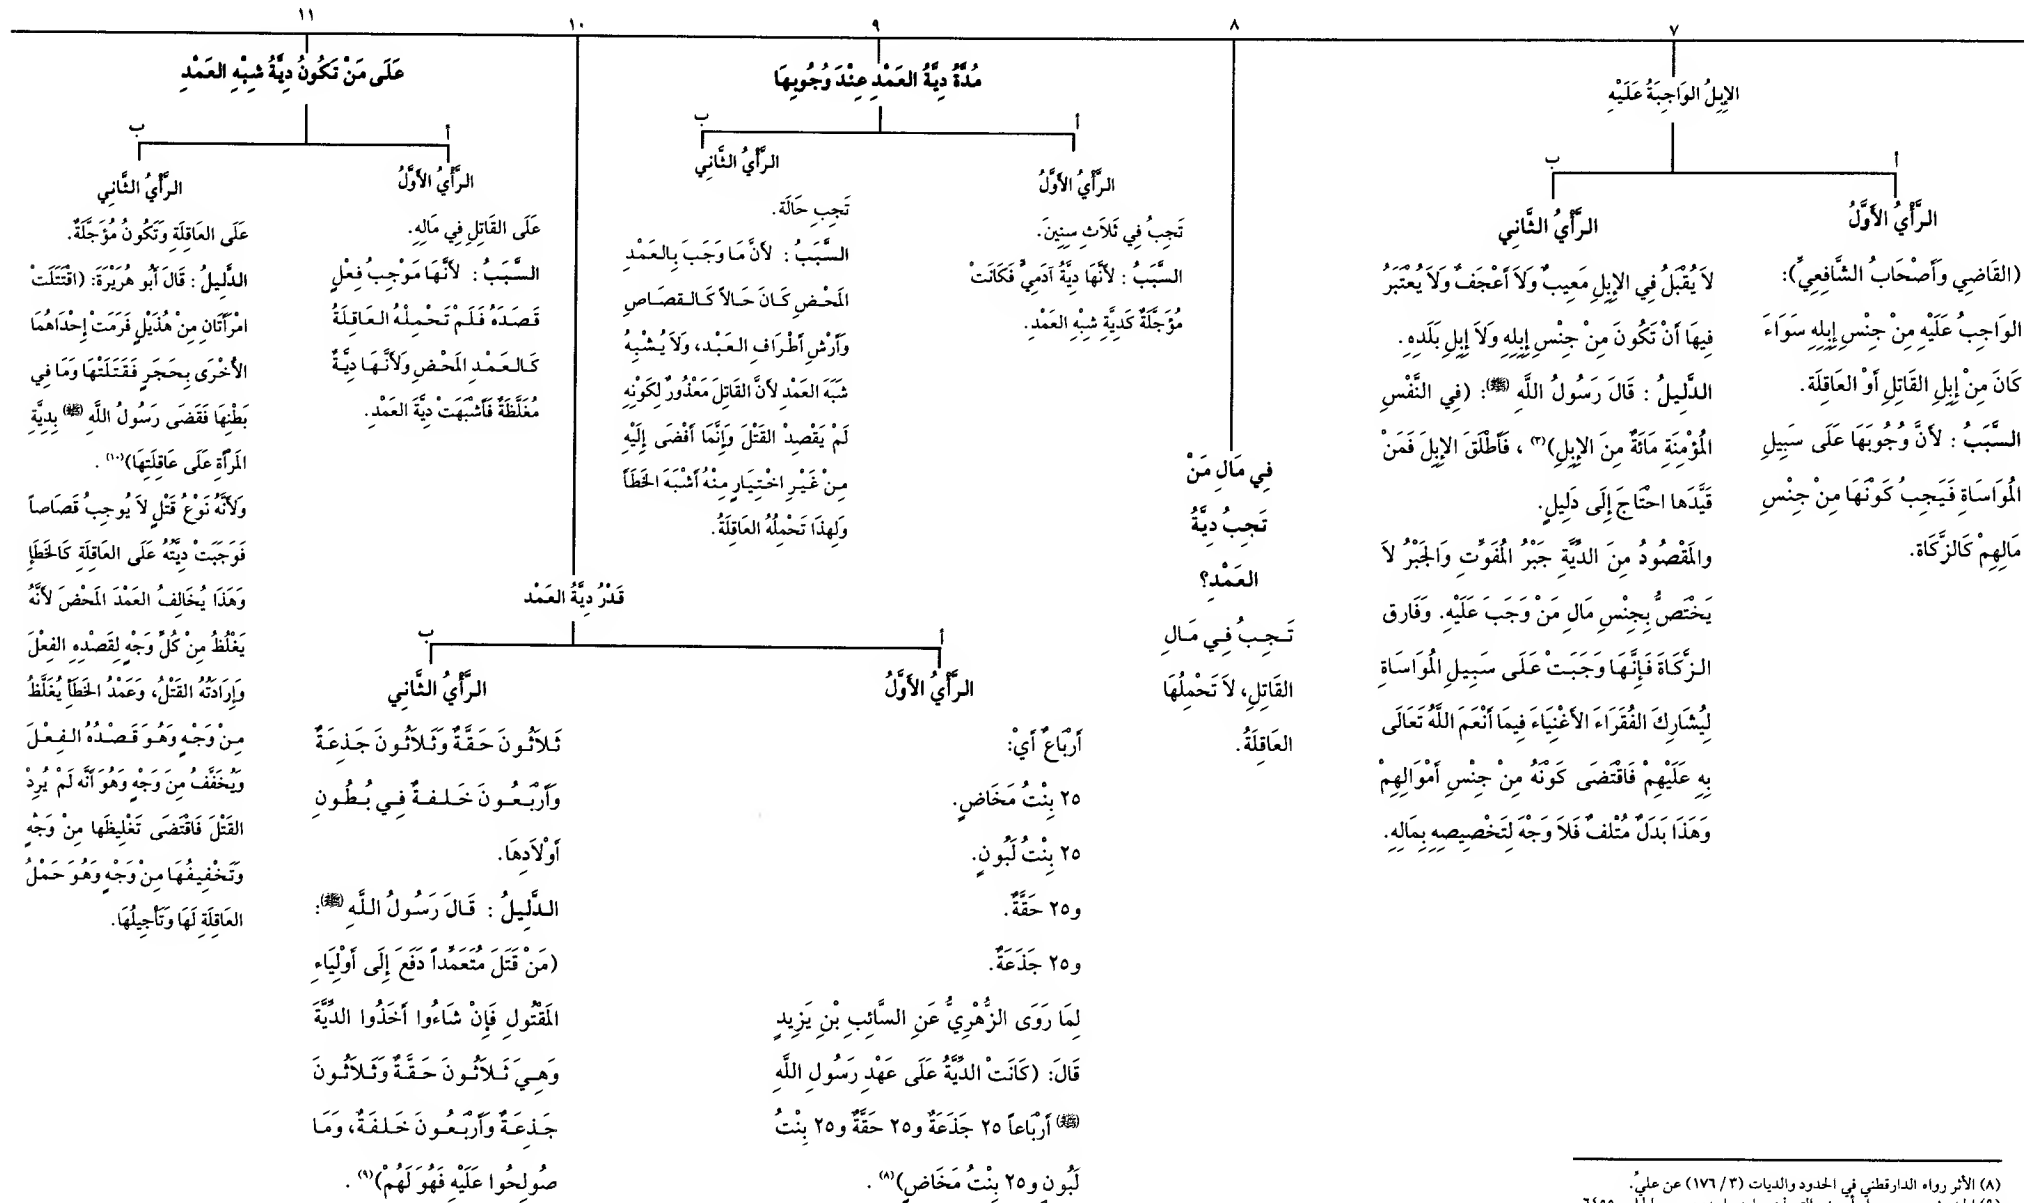 ٧
الإِبِلُ الوَاجِبَةُ عَلَيْهِ
أ
الرَّأْيُ الأَوَّلُ
(القَاضِي وَأَصْحَابُ الشَّافِعِيِّ):
الوَاجِبُ عَلَيْهِ مِنْ جِنْسِ إِبِلِهِ سَوَاءَ
كَانَ مِنْ إِبِلِ القَاتِلِ أَوْ العَاقِلَة.
السَّبَبُ : لأَنَّ وُجُوبَهَا عَلَى سَبِيلِ
المُوَاسَاةِ فَيَجِبُ كَوْنَهَا مِنْ جِنْسِ
مَالِهِمْ كَالزَّكَاة.
ب
الرَّأْيُ الثَّانِي
لاَ يُقْبَلُ فِي الإِبِلِ مَعِيبٌ وَلاَ أَعْجَفٌ وَلاَ يُعْتَبَرُ
فِيهَا أَنْ تَكُونَ مِنْ جِنْسِ إِبِلِهِ وَلاَ إِبِلِ بَلَدِهِ.
الدَّلِيلُ : قَالَ رَسُولُ اللَّهِ (ﷺ): (فِي النَّفْسِ
المُؤْمِنَةِ مَائَةٌ مِنَ الإِبِلِ)(٣) ، فَأَطْلَقَ الإِبِلَ فَمَنْ
قَيَّدَهَا احْتَاجَ إِلَى دَلِيلٍ.
والمَقْصُودُ مِنَ الدِّيَّةِ جَبْرُ المُفَوَّتِ وَالجَبْرُ لاَ
يَخْتَصُّ بِجِنْسِ مَالِ مَنْ وَجَبَ عَلَيْهِ. وَفَارق
الزَّكَاةَ فَإِنَّهَا وَجَبَتْ عَلَى سَبِيلِ المُوَاسَاةِ
لِيُشَارِكَ الفُقَرَاءَ الأَغْنِيَاءَ فِيمَا أَنْعَمَ اللَّهُ تَعَالَى
بِهِ عَلَيْهِمْ فَاقْتَضَى كَوْنَهُ مِنْ جِنْسِ أَمْوَالِهِمْ
وَهَذَا بَدَلٌ مُتْلفٌ فَلاَ وَجْهَ لِتَخْصِيصِهِ بِمَالِهِ.
٨
فِي مَالِ مَنْ
تَجِبُ دِيَّةُ
العَمْدِ؟
تَجِبُ فِي مَال
القَاتِلِ، لاَ تَحْمِلُهَا
العَاقِلَةُ.
٩
مُدَّةُ دِيَّةُ العَمْدِ عِنْدَ وُجُوبِهَا
أ
الرَّأْيُ الأَوَّلُ
تَجِبُ فِي ثَلاَثِ سِنِينَ.
السَّبَبُ : لأَنَّهَا دِيَّةُ آدَمِيٍّ فَكَانَتْ
مُؤَجَّلَةٌ كَدِيَّةِ شِبْهِ العَمْدِ.
ب
الرَّأْيُ الثَّانِي
تَجِب حَالَة.
السَّبَبُ : لأَنَّ مَا وَجَبَ بِالعَمْدِ
المَحْضِ كَانَ حَالاً كَالقصَاصِ
وَأَرْشِ أَطْرَافِ العَبْد، وَلاَ يُشْبِهُ
شَبَهَ العَمْدِ لأَنَّ القَاتِلَ مَعْذُورٌ لِكَوْنِهِ
لَمْ يَقْصِدْ القَتْلَ وَإِنَّمَا أَفْضَى إِلَيْهِ
مِنْ غَيْرِ اخْتِيَارٍ مِنْهُ أَشْبَهَ الخَطَأ
وَلِهذَا تَحْمِلُهُ العَاقِلَةُ.
١٠
قَدْرُ دِيَّةُ العَمْد
أ
الرَّأْيُ الأَوَّلُ
أَرْبَاعٌ أَيْ:
٢٥ بِنْتُ مَخَاضٍ.
٢٥ بِنْتُ لَبُونٍ.
و٢٥ حَقَّةٌ.
و٢٥ جَذَعَةٌ.
لِمَا رَوَى الزُّهْرِيُّ عَنِ السَّائِبِ بْنِ يَزِيدٍ
قَالَ: (كَانَتْ الدِّيَّةُ عَلَى عَهْدِ رَسُولِ اللَّهِ
(ﷺ) أَرْبَاعاً ٢٥ جَذَعَةٌ و٢٥ حَقَّةٌ و٢٥ بِنْتُ
لَبُونٍ و٢٥ بِنْتُ مَخَاضٍ)(٨) .
ب
الرَّأْيُ الثَّانِي
ثَلاَثُونَ حَقَّةٌ وَثَلاَثُونَ جَذِعَةٌ
وَأَرْبَعُونَ خَلفةٌ فِي بُطُونِ
أَوْلاَدِهَا.
الدَّلِيلُ : قَالَ رَسُولُ اللَّه (ﷺ):
(مَنْ قَتَلَ مُتَعَمِّداً دَفَعَ إِلَى أَوْلِيَاءِ
المَقْتُولِ فَإِنْ شَاءُوا أَخَذُوا الدِّيَّةَ
وَهِيَ ثَلاَثُونَ حَقَّةٌ وَثَلاَثُونَ
جَذِعَةٌ وَأَرْبَعُونَ خَلفَةٌ، وَمَا
صُولِحُوا عَلَيْهِ فَهُوَ لَهُمْ)(٩) .
١١
عَلَى مَنْ تَكُونُ دِيَّةُ شِبْهِ العَمْدِ
أ
الرَّأْيُ الأَوَّلُ
عَلَى القَاتِلِ فِي مَالِهِ.
السَّبَبُ : لأَنَّهَا مَوْجِبُ فِعْلٍ
قَصَدَهُ فَلَمْ تَحْمِلْهُ العَاقِلَةُ
كَالعَمْدِ المَحْضِ وَلأَنَّهَا دِيَّةٌ
مُغَلَّظَةٌ فَأَشْبَهَتْ دِيَّةَ العَمْدِ.
ب
الرَّأْيُ الثَّانِي
عَلَى العَاقِلَةِ وَتَكُونُ مُؤَجَّلَةٌ.
الدَّلِيلُ : قَالَ أَبُو هُرَيْرَةَ: (اقْتَتَلَتْ
امْرَأَتَانِ مِنْ هُذَيْلٍ فَرَمَتْ إِحْدَاهُمَا
الأُخْرَى بِحَجَرٍ فَقَتَلَتْهَا وَمَا فِي
بَطْنِهَا فَقَضَى رَسُولُ اللَّهِ (ﷺ) بِدِيَّةِ
المَرْأَةِ عَلَى عَاقِلَتِهَا)(١٠) .
وَلأَنَّهُ نَوْعُ قَتْلٍ لاَ يُوجِبُ قَصَاصاً
فَوَجَبَتْ دِيَّتُهُ عَلَى العَاقِلَةِ كَالخَطَإِ
وَهَذَا يُخَالِفُ العَمْدَ المَحْضَ لأَنَّهُ
يَغْلُظُ مِنْ كُلِّ وَجْهٍ لِقَصْدِهِ الفِعْلَ
وَإِرَادَتُهُ القَتْلُ، وَعَمْدُ الخَطَأِ يُغَلَّظُ
مِنْ وَجْهٍ وَهُوَ قَصْدُهُ الفِعْلَ
وَيُخَفَّفُ مِنَ وَجْهٍ وَهُوَ أَنَّه لَمْ يُرِدْ
القَتْلَ فَاقْتَضَى تَغْلِيظَها مِنْ وَجْهٍ
وَتَخْفِيفُهَا مِنْ وَجْهٍ وَهُوَ حَمْلُ
العَاقِلَةِ لَهَا وَتَأْجِيلُهَا.
(٨) الأثر رواه الدارقطني في الحدود والديات (٣/ ١٧٦) عن عليّ.